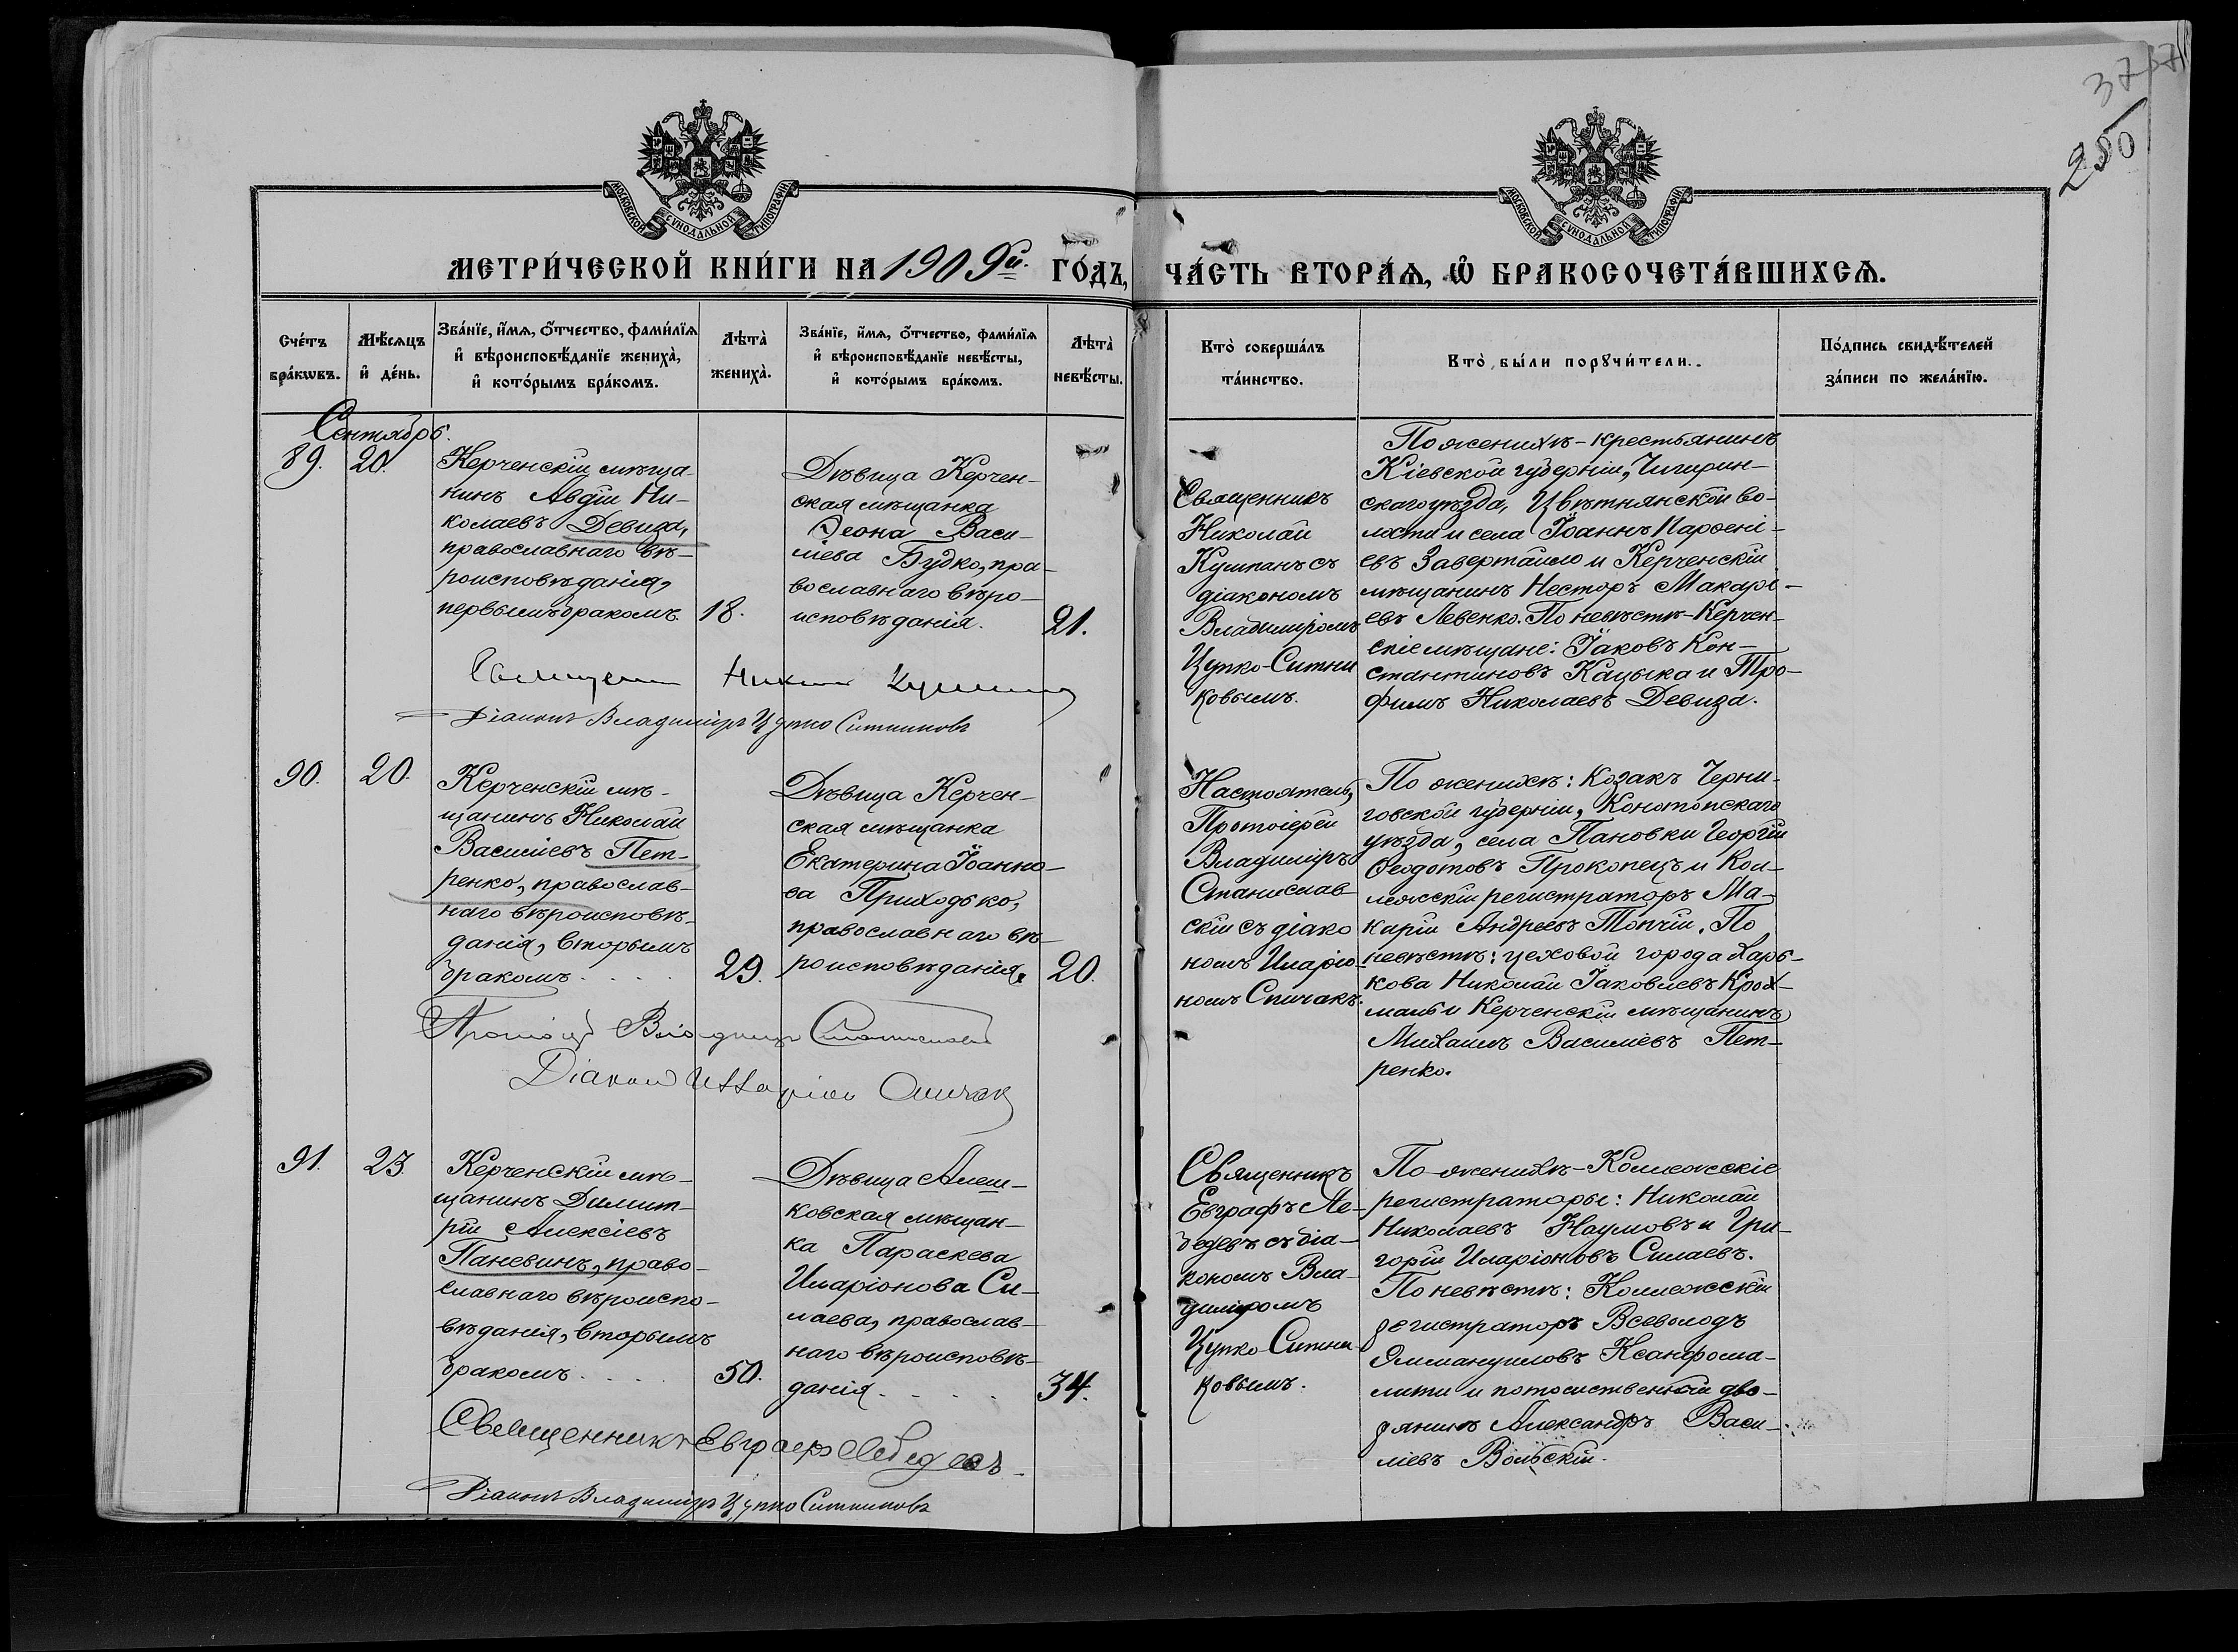 37
250
МОСКОВСКОЙ СѴНОДАЛЬНОЙ ТИПОГРАФІИ
МОСКОВСКОЙ СѴНОДАЛЬНОЙ ТИПОГРАФІИ
МЕТРИ́ЧЕСКОЙ КНИ́ГИ НА 1909й. ГО́ДЪ,
ЧА́СТЬ ВТОРА́Ѧ, Ѡ҆ БРАКОСОЧЕТА́ВШИХСѦ.
Сче́тъ
бра́кѡвъ.
Мѣ́сѧцъ
и҆ де́нь.
Зва́нїе, и҆́мѧ, ѻ҆́тчество, фами́лїѧ
и҆ вѣроисповѣ́данїе жениха̀,
и҆ кото́рымъ бра́комъ.
Лѣта̀
жениха̀.
Зва́нїе, и҆́мѧ, ѻ҆́тчество, фами́лїѧ
и҆ вѣроисповѣ́данїе невѣ́сты,
и҆ кото́рымъ бра́комъ.
Лѣта̀
невѣ́сты.
Кто̀ соверша́лъ
та́инство.
Кто̀ бы́ли порꙋчи́тели.
По́дпись свидѣ́телей
за́писи по жела́нїю.
Сентябрь.
89.
20.
Керченскій мѣща-
нинъ Авдій Ни-
колаевъ Девиза,
православнаго вѣ-
роисповѣданія,
первымъ бракомъ.
18.
Дѣвица Керчен-
ская мѣщанка
Ѳеона Васи-
ліева Будко, пра-
вославнаго вѣро-
исповѣданія.
21.
Священникъ
Николай
Кушпанъ съ
діакономъ
Владиміромъ
Цупко-Ситни
ковымъ.
По женихѣ - крестьянинъ
Кіевской губерніи, Чигирин-
скаго уѣзда, Цвѣтнянской во-
лости и села Іоаннъ Парѳені-
евъ Завертайло и Керченскій
мѣщанинъ Несторъ Макарі-
евъ Левенко. По невѣстѣ - Керчен-
скіе мѣщане: Іаковъ Кон-
стантиновъ Кацыка и Тро-
фимъ Николаевъ Девиза.
Діаконъ Владиміръ Цупко Ситниковъ
90.
20.
Керченскій мѣ-
щанинъ Николай
Василіевъ Пет-
ренко, православ-
наго вѣроисповѣ-
данія, вторымъ
бракомъ. . . .
29.
Дѣвица Керчен-
ская мѣщанка
Екатерина Іоанно-
ва Приходько,
православнаго вѣ-
роисповѣданія.
20.
Настоятель,
Протоіерей
Владиміръ
Станислав
скій съ діако
номъ Иларіо-
номъ Спичакъ.
По женихѣ: Козакъ Черни-
говской губерніи, Конотопскаго
уѣзда, села Пановки Георгій
Ѳеодотовъ Прокопецъ и Кол-
лежскій регистраторъ Ма-
карій Андреевъ Топчій. По
невѣстѣ: цеховой города Харь-
кова Николай Іаковлевъ Крох-
маль и Керченскій мѣщанинъ
Михаилъ Василіевъ Пет-
ренко.
Діаконъ Илларіонъ Спичак
91.
23.
Керченскій мѣ-
щанинъ Димит-
рій Алексіевъ
Паневинъ, право-
славнаго вѣроиспо-
вѣданія, вторымъ
бракомъ. . . .
50.
Дѣвица Алеш-
ковская мѣщан-
ка Параскева
Иларіонова Си-
лаева, православ-
наго вѣроисповѣ-
данія. . . .
34.
Священникъ
Евграфъ Ле-
бедевъ съ діа-
кономъ Вла-
диміромъ
Цупко-Ситни-
ковымъ.
По женихѣ - Коллежскіе
регистраторы: Николай
Николаевъ Наумовъ и Гри-
горій Иларіоновъ Силаевъ.
По невѣстѣ: Коллежскій
регистраторъ Всеволодъ
Эммануиловъ Ксанфома-
лити и потомственный дво-
рянинъ Александръ Васи-
ліевъ Вольскій.
Священникъ Евграфъ Лебедевъ
Діаконъ Владиміръ Цупко Ситниковъ